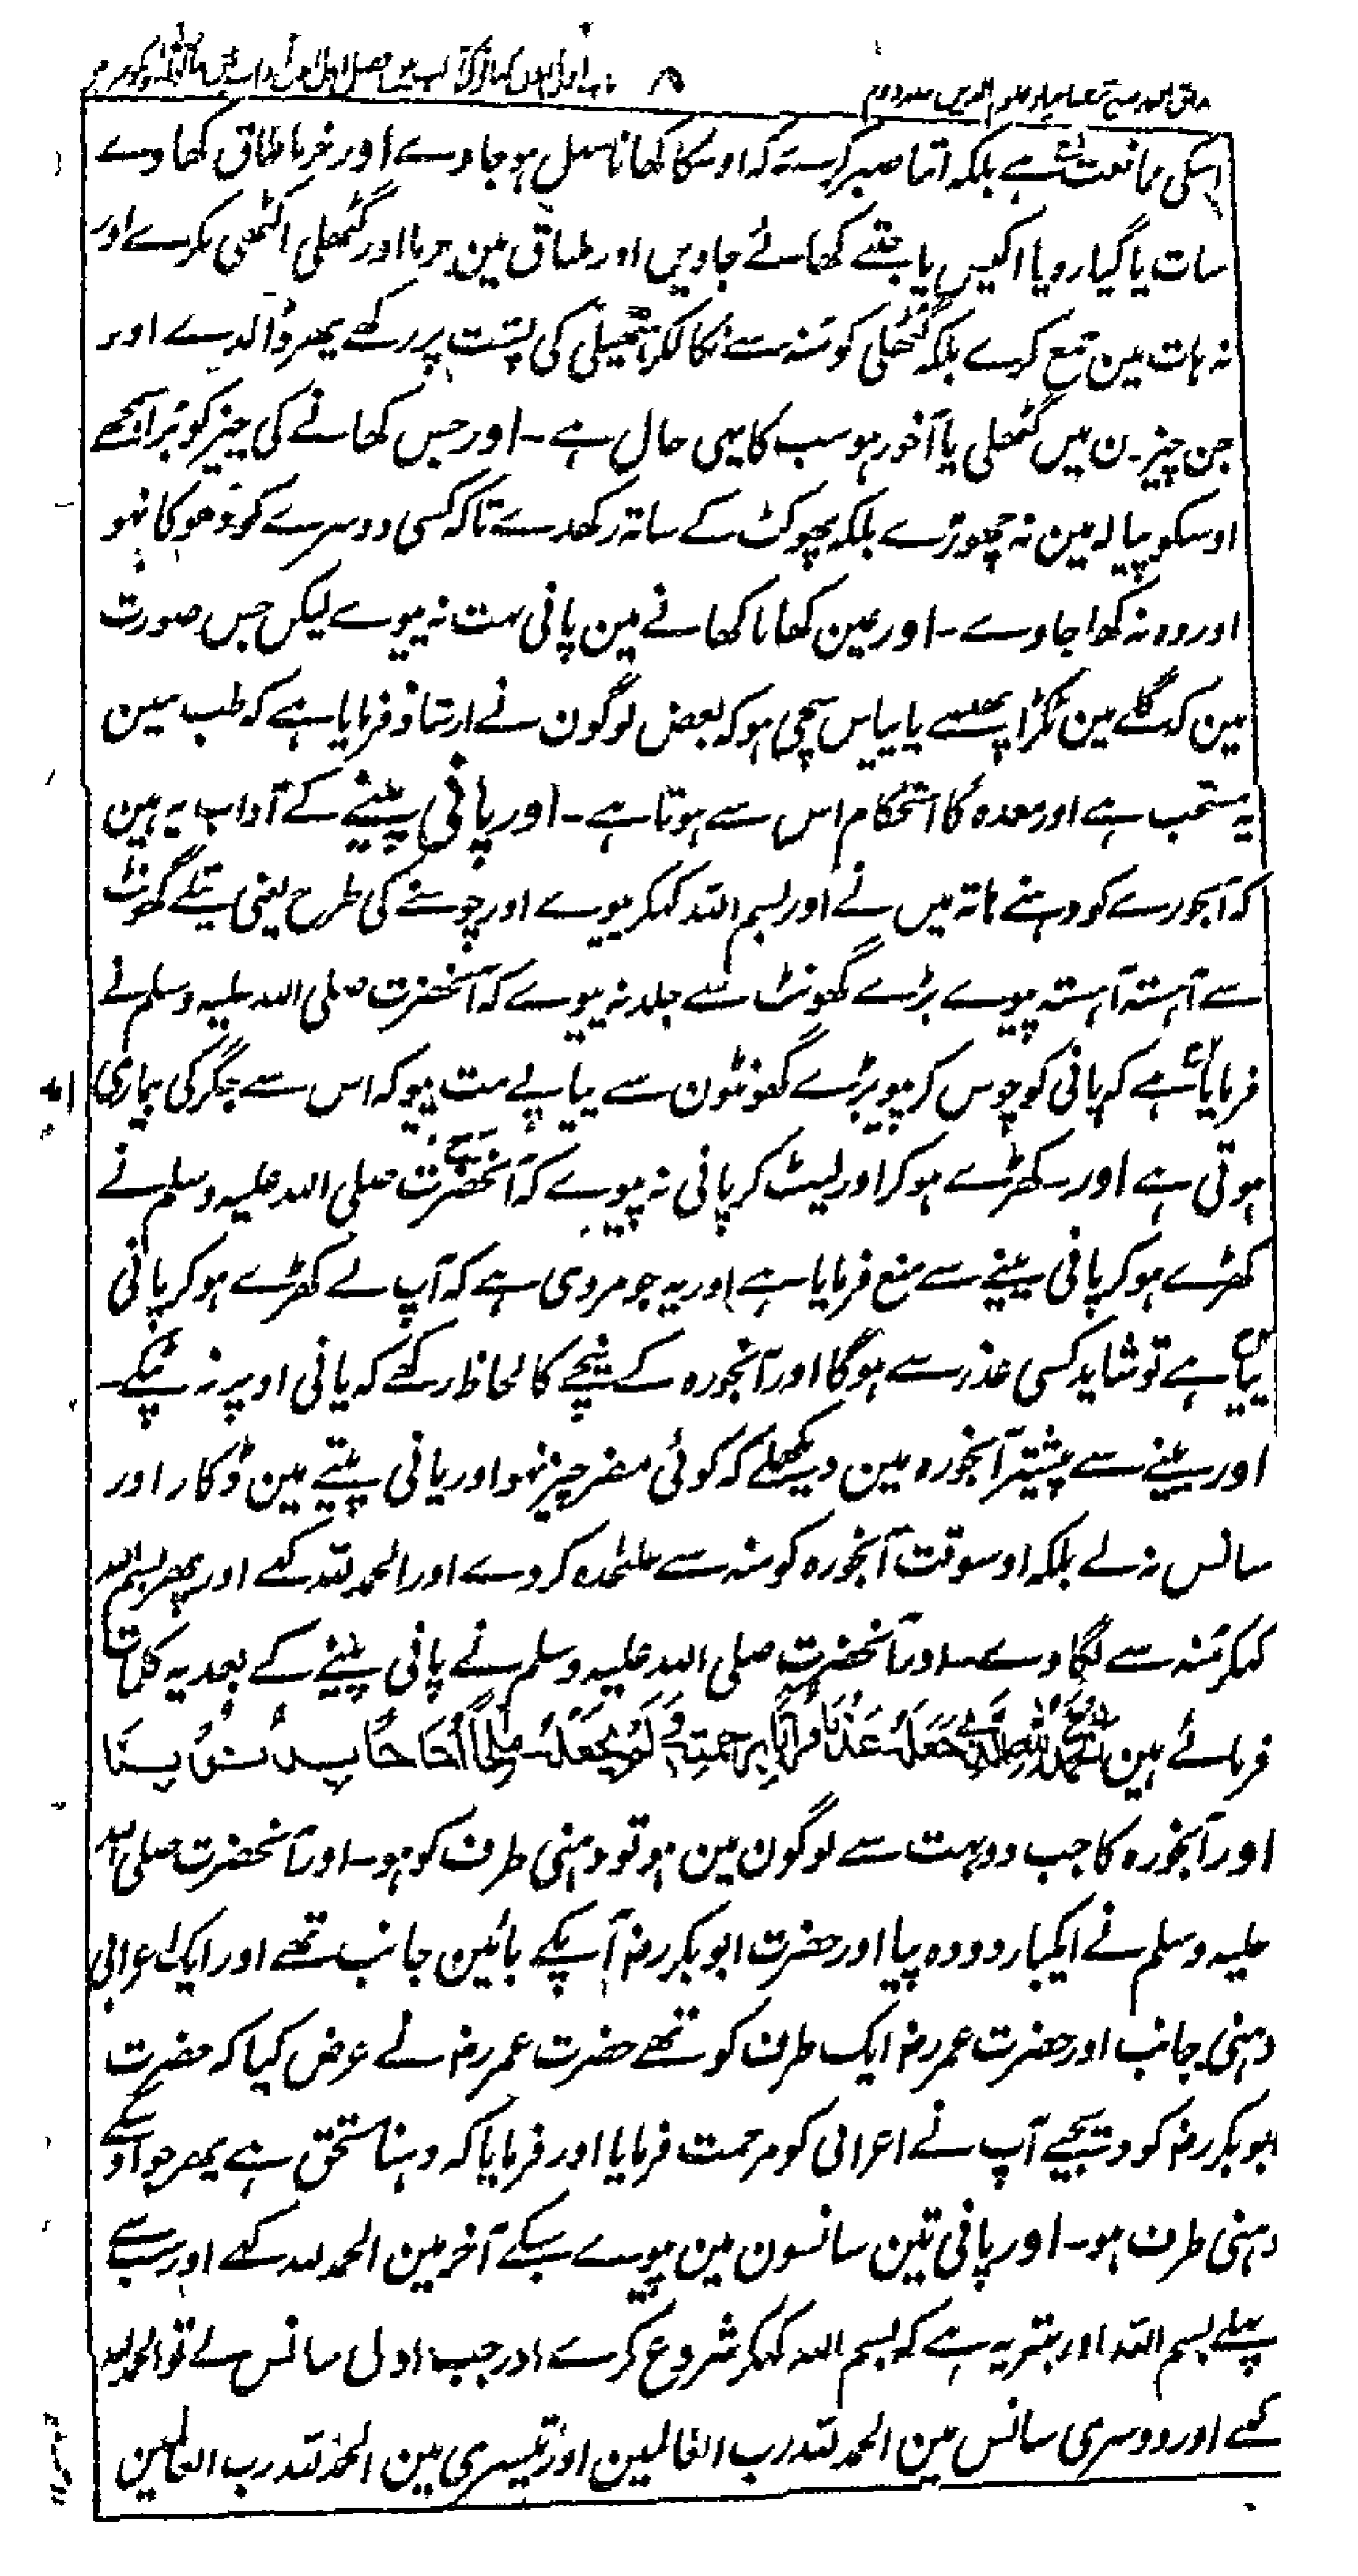 ۸
اسکی ممانعت ہے بلکہ اتنا صبر کرے کہ اوسکا کھانا سہل ہو جاوے اور خرما طاق کھاوے
سات یا گیارہ یا اکیس یا جتنے کھائے جاویں اور طباق مین خرما اور گٹھلی اکٹھی نکرے اور
نہ ہات مین جمع کرے بلکہ گٹھلی کو منہ سے نکالکر ہتھیلی کی پشت پر رکھے پھر ڈالدے اور
جن چیزون میں گٹھلی یا آخور ہو سب کا یہی حال ہے ۔ اور جس کھانے کی چیز کو بُرا سمجھے
اوسکو پیالہ مین نہ چھوڑے بلکہ پھوکٹ کے ساتہ رکھدے تاکہ کسی دوسرے کو دھوکا نہو
اور وہ نہ کھا جاوے ۔ اور عین کھانا کھانے مین پانی بہت نہ پیوے لیکن جس صورت
مین کہ گلے مین ٹکڑا پھنسے یا پیاس سچی ہو کہ بعض لوگون نے ارشاد فرمایا ہے کہ طب مین
یہ مستحب ہے اور معدہ کا استحکام اس سے ہوتا ہے ۔ اور پانی پینے کے آداب یہ ہین
کہ آبخورے کو دہنے ہاتہ میں لے اور بسم اللہ کہکر پیوے اور چوسنے کی طرح یعنی پتلے گھونٹ
سے آہستہ آہستہ پیوے بڑے گھونٹ سے جلد نہ پیوے کہ آنحضرت صلی اللہ علیہ وسلم نے
فرمایا ہے کہ پانی کو چوس کر پیو بڑے گھونٹون سے پیاپے مت پیو کہ اس سے جگر کی بیماری
ہوتی ہے اور کھڑے ہو کر اور لیٹ کر پانی نہ پیوے کہ آنحضرت صلی اللہ علیہ وسلم نے
کھڑے ہو کر پانی پینے سے منع فرمایا ہے اور یہ جو مروی ہے کہ آپ نے کھڑے ہو کر پانی
پیا ہے تو شاید کسی عذر سے ہوگا اور آبخورہ کے نیچے کا لحاظ رکھے کہ پانی اوپر نہ ٹپکے ۔
اور پینے سے پیشتر آبخورہ مین دیکھلے کہ کوئی مضر چیز نہو اور پانی پیتے مین ڈکار اور
سانس نہ لے بلکہ اوسوقت آبخورہ کو منہ سے علٰحدہ کر دے اور الحمد للہ کہے اور پھر بسم اللہ
کہکر منہ سے لگاوے ۔ اور آنحضرت صلی اللہ علیہ وسلم نے پانی پینے کے بعد یہ کلمات
فرمائے ہین اَلْحَمْدُ لِلّٰہِ الَّذِیْ جَعَلَہٗ عَذْبًا فُرَاتًا بِرَحْمَتِہٖ وَلَمْ یَجْعَلْہُ مِلْحًا اُجَاجًا بِذُنُوْبِنَا
اور آبخورہ کا جب دور بہت سے لوگون مین ہو تو دہنی طرف کو ہو ۔ اور آنحضرت صلی اللہ
علیہ وسلم نے ایکبار دودہ پیا اور حضرت ابوبکر رضہ آپکے بائین جانب تھے اور ایک اعرابی
دہنی جانب اور حضرت عمر رضہ ایک طرف کو تھے حضرت عمر رضہ نے عرض کیا کہ حضرت
ابوبکر رضہ کو دیجیے آپ نے اعرابی کو مرحمت فرمایا اور فرمایا کہ دہنا مستحق ہے پھر جو اوسکے
دہنی طرف ہو ۔ اور پانی تین سانسون مین پیوے سبکے آخر مین الحمد للہ کہے اور سب سے
پہلے بسم اللہ اور بہتر یہ ہے کہ بسم اللہ کہکر شروع کرے اور جب اول سانس لے تو الحمد للہ
کہے اور دوسری سانس مین الحمد للہ رب العالمین اور تیسری مین الحمد للہ رب العالمین